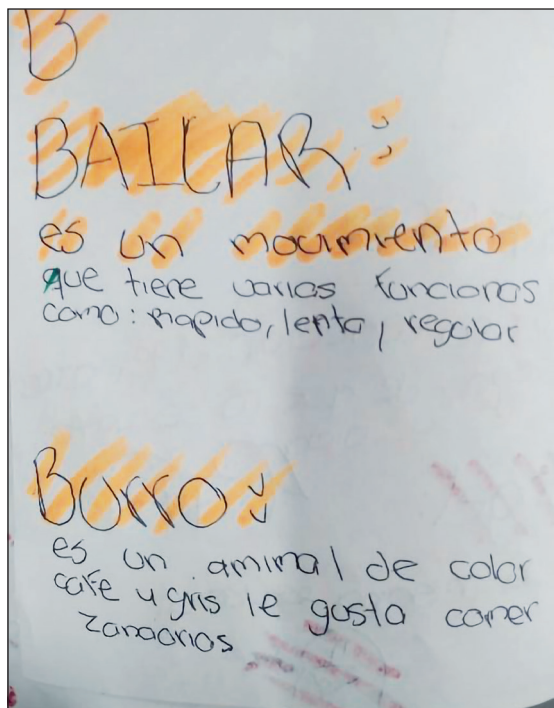 B
BAILAR:
es un mocimiento
que tiene varias funcionas
como: rapido, lento, regolar
Burro:
es un amimal de color
cafe y gris le gusta comer
zanaorios